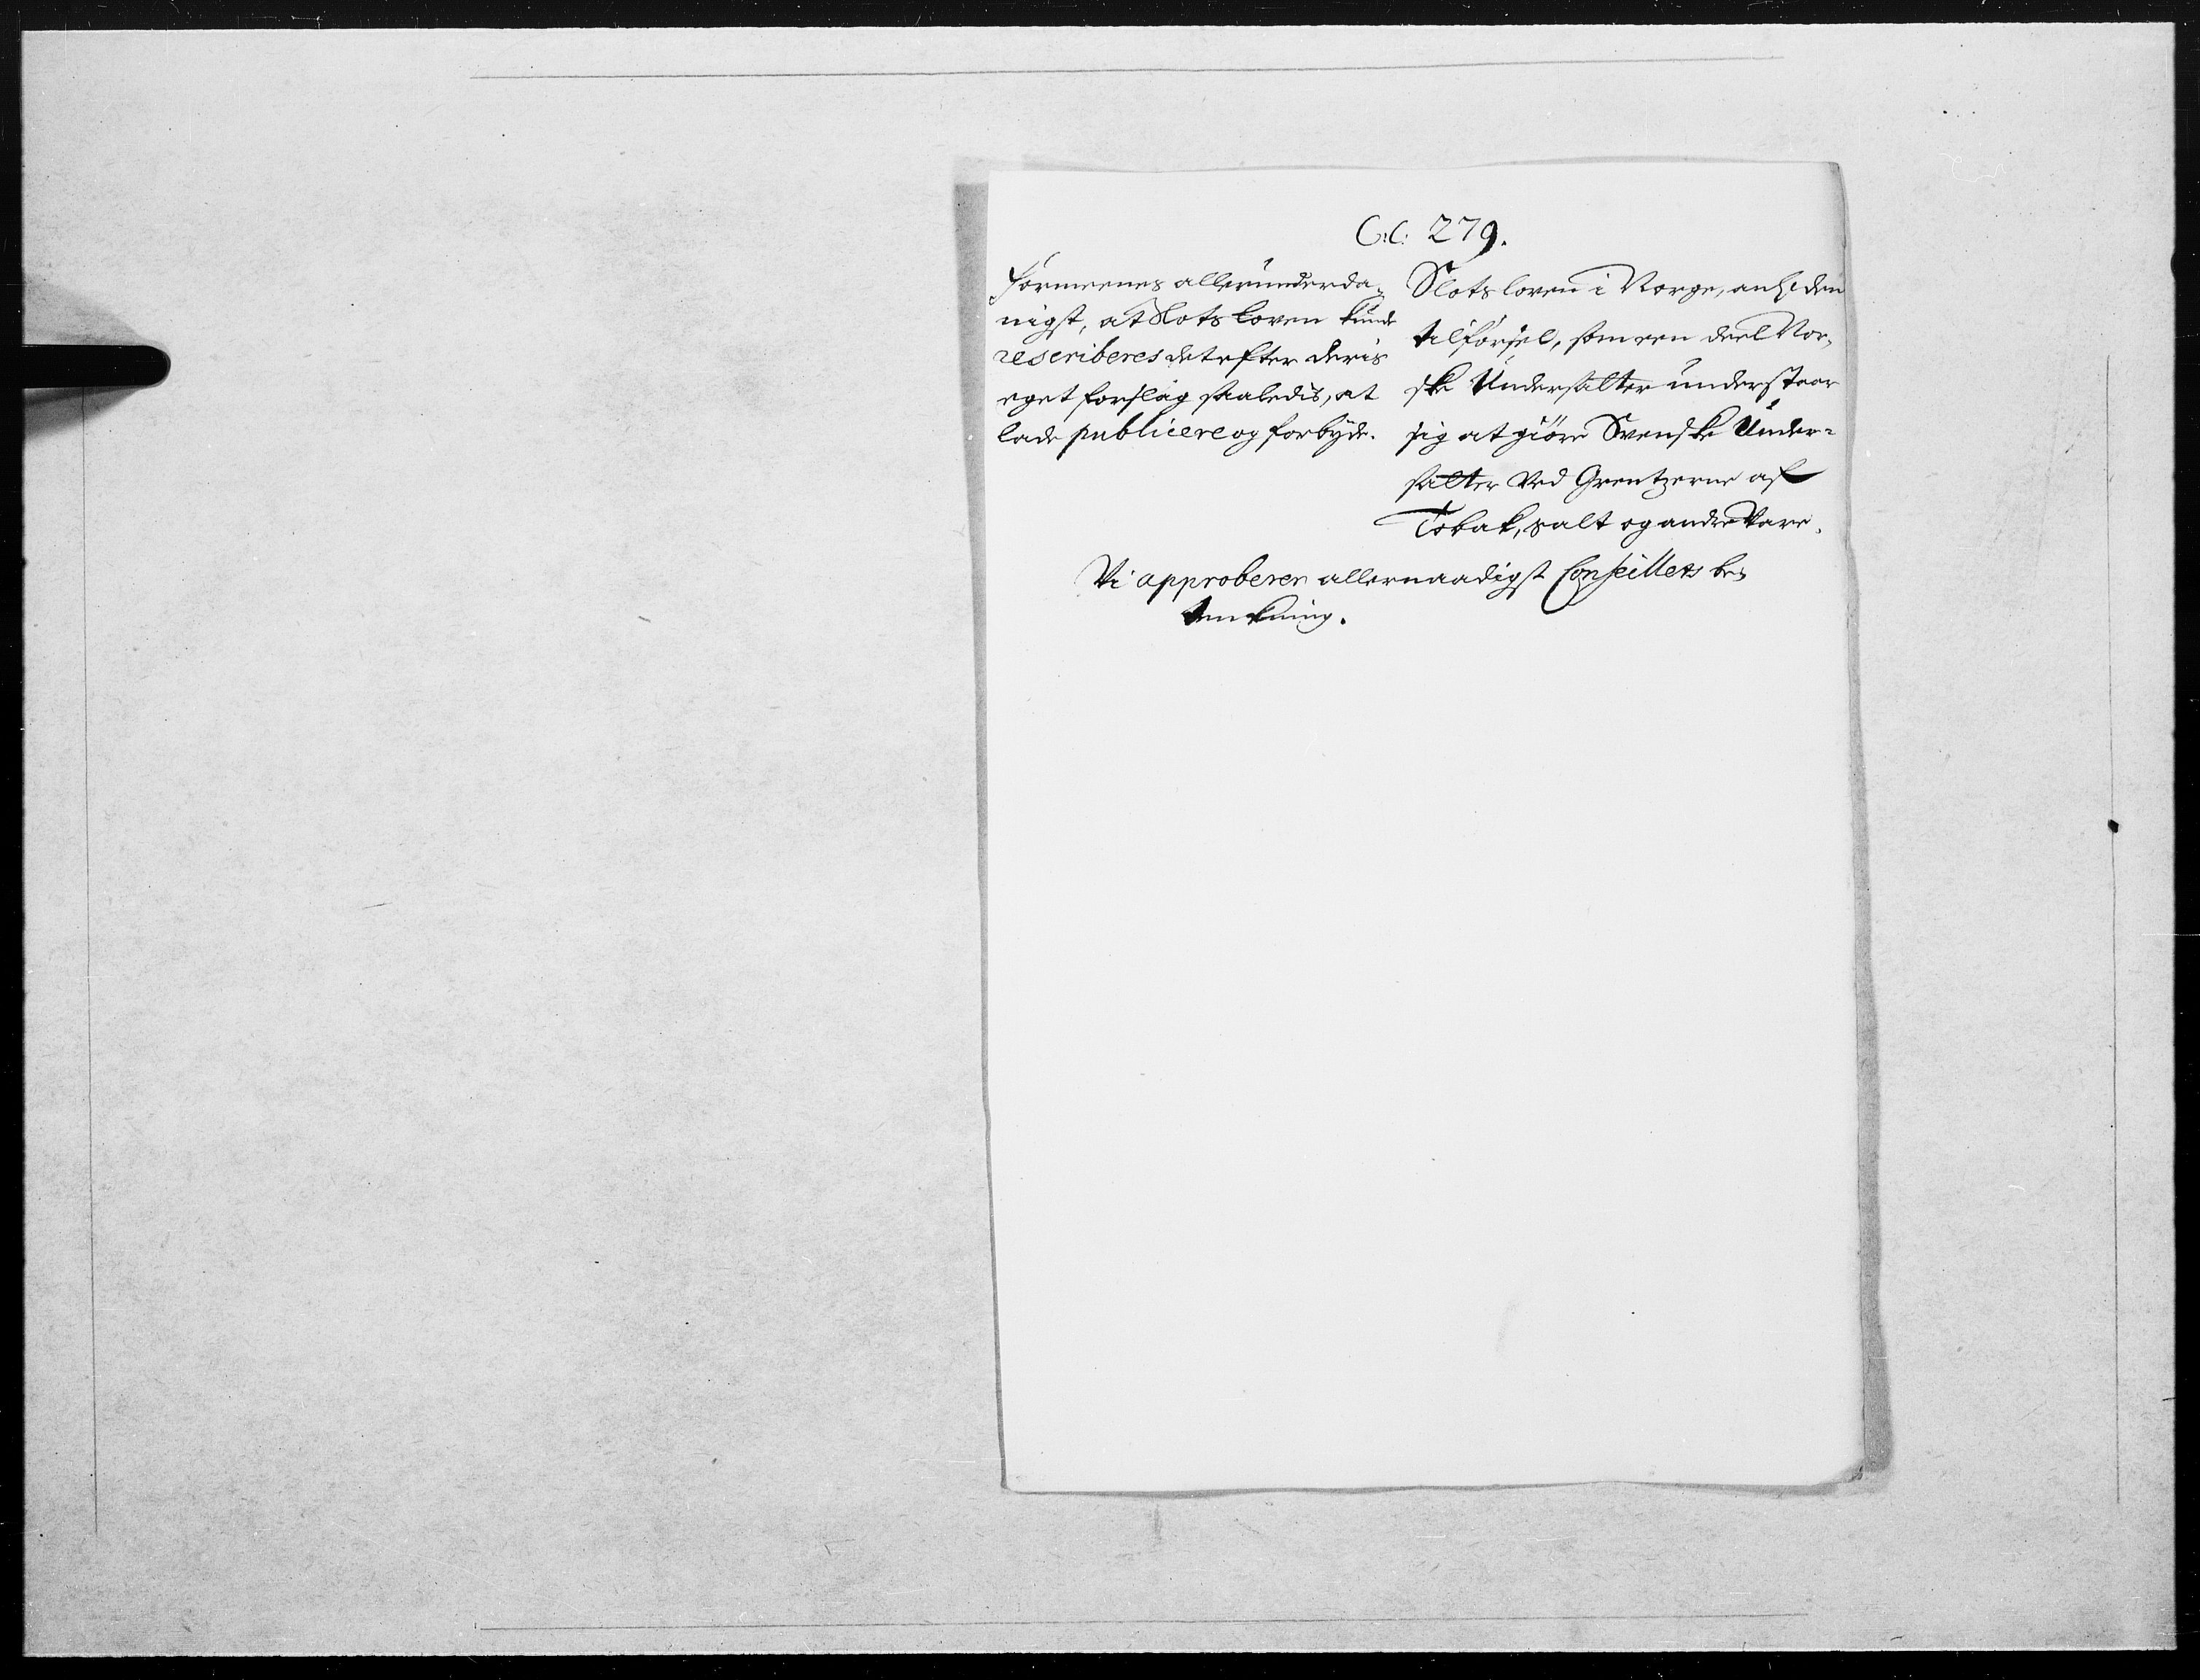 C:C: 279.
formeenes allerunderda-
nigst, at Slotsloven kunde
rescriberes det efter deris
eget forslag saaledis, at
lade publicere og forbyde.
Slotsloven i Norge, anl: den
tilförsel, som een deel Nor-
ske Undersatter understaar
sig at giöre Svenske Under-
satter ved Grentzerne af
Tobak, salt og andre Vare.
Vi approberer allernaadigst Conseillets be-
tenkning.